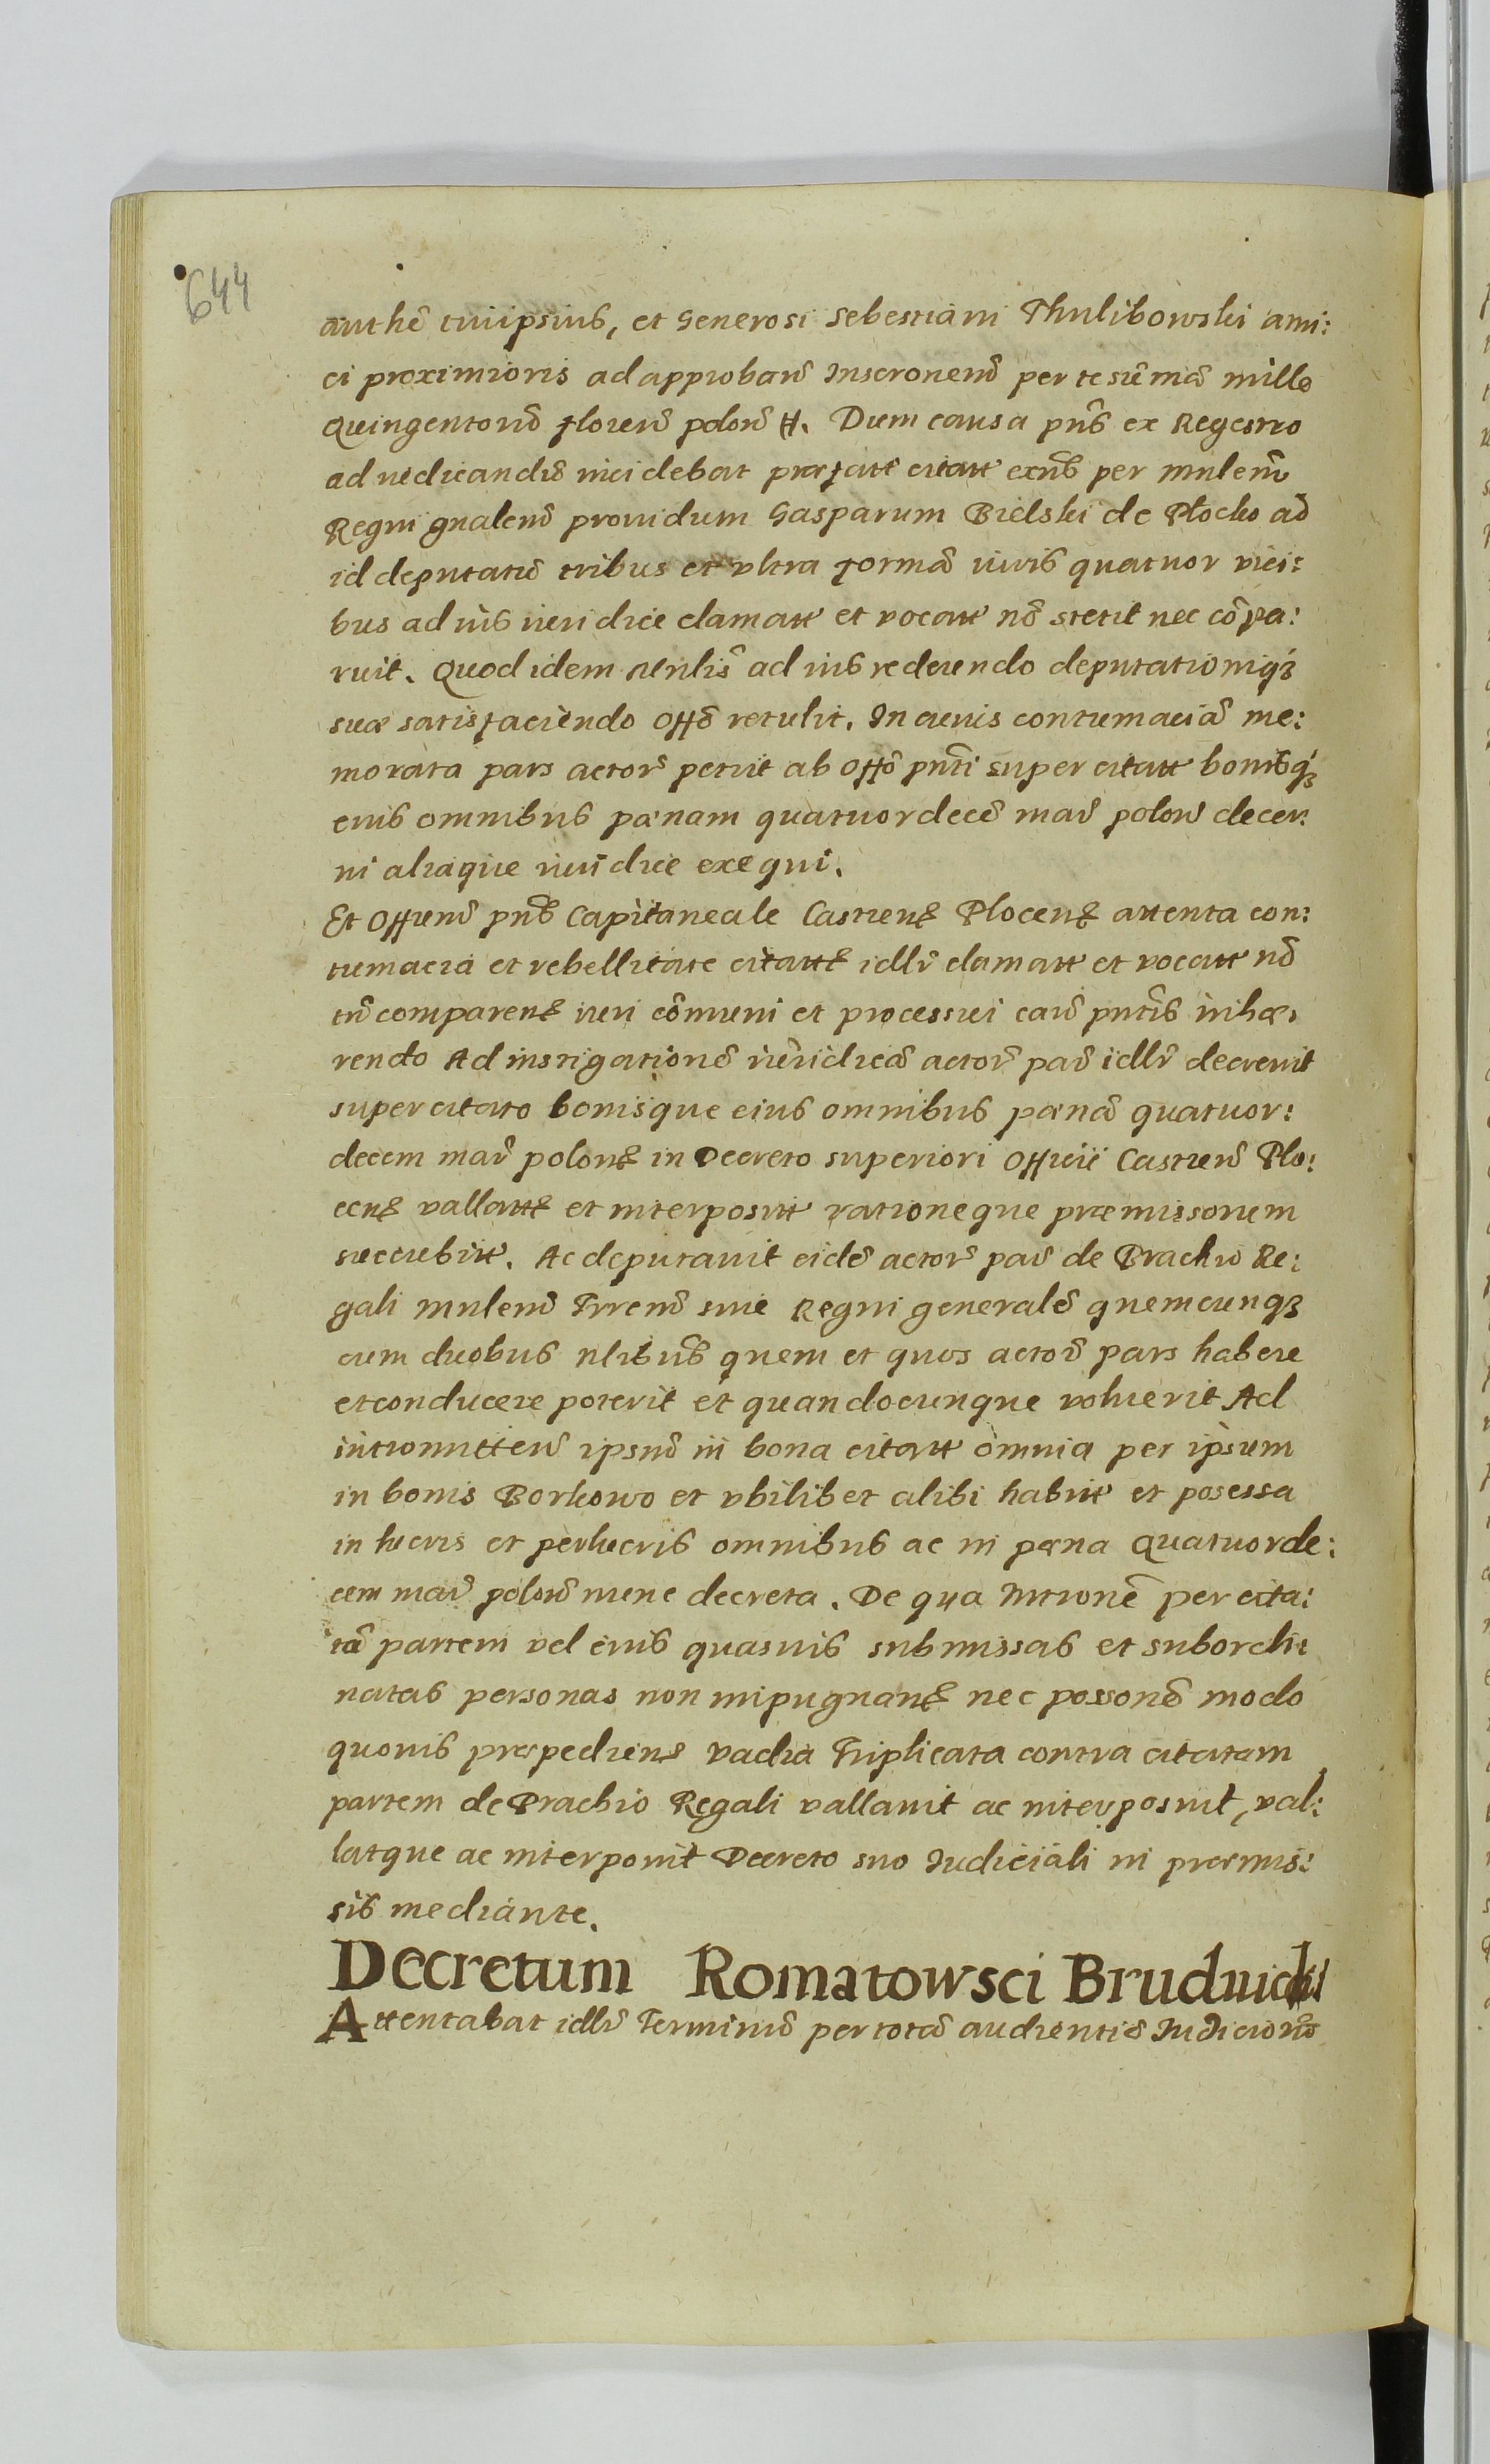 644
authē tuiipsius, et Generosi Sebestiani Thulibowski ami:
ci proximioris ad approband̄ Inscronem̄ per te sūmā mille
Quingentorū floren̄ polon̄ H. Dum causa pn̄s ex Regestro
ad iudicandū incidebat præfatt citatt exn̄s per mnlem̄
Regni gnalem̄ prouidum Gasparum Bielski de Płocko ad
id deputatū tribus et vltra formā iuris quatuor vici:
bus ad ius iuridice clamatt et vocatt nō stetit nec cōpa:
ruit. Quod idem mnlis̄ ad ius redeundo deputationiq3
suæ satisfaciendo Offō retulit. In cuius contumaciā me:
morata pars actor̄ petiit ab Offō pn̄ti super citatt bonisq3
eius omnibus pænam quatuordecē mar̄ polon̄ decer:
ni aliaque iuridice exequi.
Et Offium̄ pn̄s Capitaneale Castren̄ Plocen̄ attenta con:
tumacia et rebellitate citatt idllr̄ clamatt et vocatt nō
tn̄ comparen̄ iuri cōmuni et processui caus̄ pn̄tis inhæ:
rendo Ad instigationē iuridicā actor̄ par̄ idllr̄ decreuit
super citato bonisque eius omnibus pænā quatuor:
decem mar̄ polon̄ in Decreto superiori Officii Castren̄ Plo:
cen̄ vallatt et interpositt rationeque præmissorum
succubitt. Ac deputauit eidē actor̄ par̄ de Brachio Re:
gali mnlem̄ Trrem̄ siue Regni generalē quemcunq3
cum duobus nlibus̄ quem et quos actor̄ pars habere
et conducere poterit et quandocunque voluerit Ad
intromitten̄ ipsum̄ in bona citatt omnia per ipsum
in bonis Borkowo et vbilibet alibi habitt et posessa
in lucris et perlucris omnibus ac in pæna Quatuorde:
cem mar̄ polon̄ nunc decreta. De qua Intronē per cita:
tā partem vel eius quasuis submissas et subordi
natas personas non inpugnan̄ nec possonē modo
quouis præpedien̄ vadia Triplicata contra citatam
partem de Brachio Regali vallauit ac interposuit, val:
latque ac interponit Decreto suo Iudiciali in præmis:
sis mediante.
Decretum Romatowsci Brudnicki
Attentabat idllr̄ Terminū per totā audientiā Iudiciorū